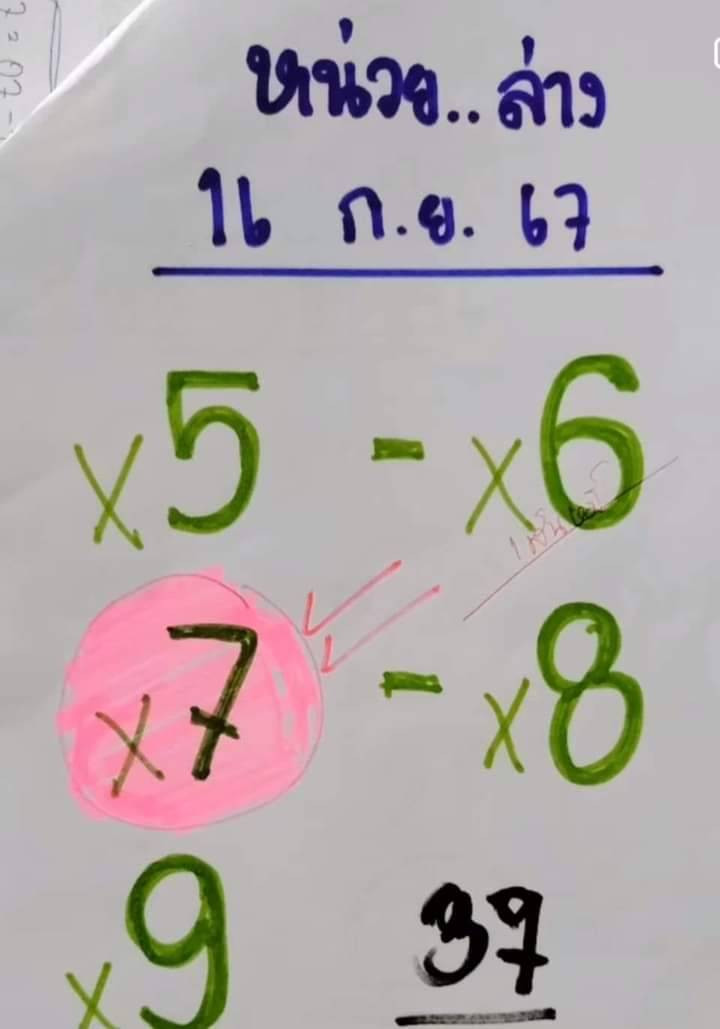 หน่วย..ล่าง
16 ก.ย. 67
x5 - x6
x7 - x8
x9
37